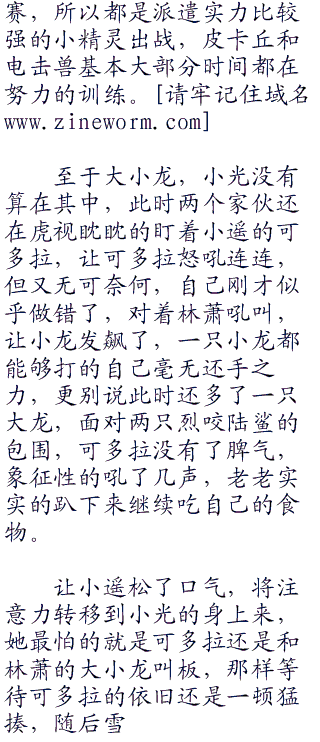 赛，所以都是派遣实力比较
强的小精灵出战，皮卡丘和
电击兽基本大部分时间都在
努力的训练。[请牢记住域名
www.zineworm.com]
至于大小龙，小光没有
算在其中，此时两个家伙还
在虎视眈眈的盯着小遥的可
多拉，让可多拉怒吼连连，
但又无可奈何，自己刚才似
乎做错了，对着林萧吼叫，
让小龙发飙了，一只小龙都
能够打的自己毫无还手之
力，更别说此时还多了一只
大龙，面对两只烈咬陆鲨的
包围，可多拉没有了脾气，
象征性的吼了几声，老老实
实的趴下来继续吃自己的食
物。
让小遥松了口气，将注
意力转移到小光的身上来，
她最怕的就是可多拉还是和
林萧的大小龙叫板，那样等
待可多拉的依旧还是一顿猛
揍，随后雪